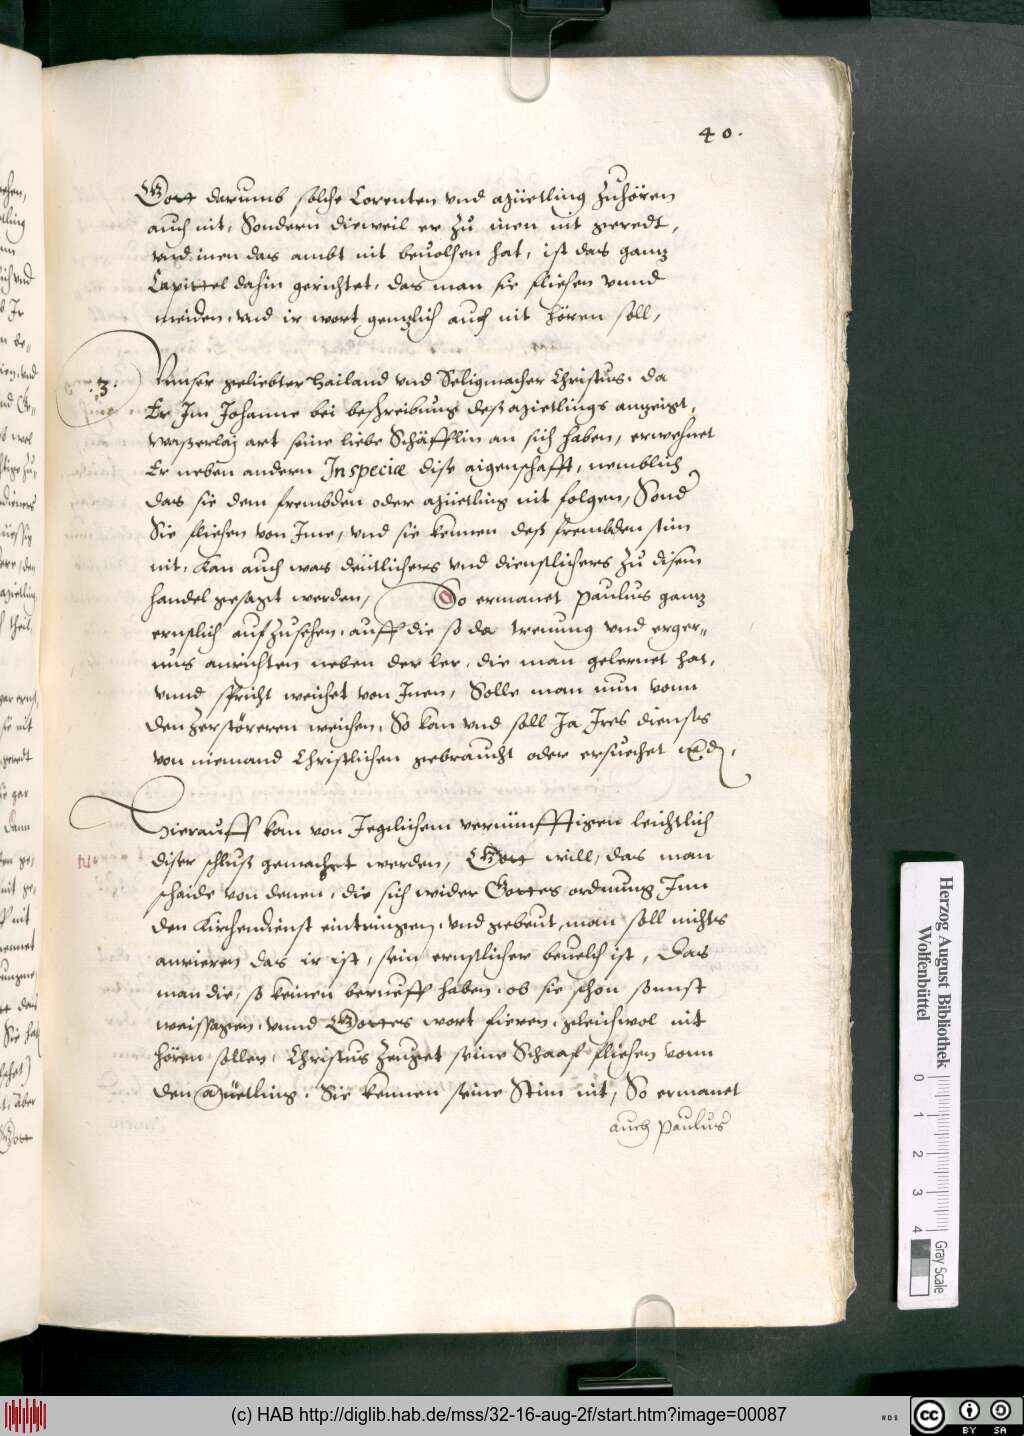 40.
Gott darumb solche Corenten vnd Müetling zuhören
auch nit, Sondern dieweil er zu inen nit geredt,
vnd inen das ambt nit beuolhen hat, ist das gantz
Capittel dahin gerichtet, das man sie fliehen vnnd
meiden, vnd ir wort gentzlich auch nit hören soll,
.3.
Vnnser geliebter Hailand vnd Seligmacher Christus, da
Er Im Johanne bei beschreibung deß Mietlings anzeigt,
waßerlaj art seine liebe Schäfflin an sich haben, erwehnet
Er neben andern In specie dise aigenschafft, nemblich
das sie dem frembden oder Müetling nit folgen, Sond
Sie fliehen von Ime, vnd sie kennen deß frembden stim
nit, Kan auch was deütlichers vnd dienstlichers zu disem
handel gesagt werden, So ermanet Paulus gantz
ernstlich aufzusehen, auff die so da trenung vnd erger-
nus anrichten neben der ler, die man gelernet hat,
vnnd spricht weichet von Inen, Solle man nun vonn
den Zerstöreren weichen, So kan vnd soll Ja Ires diensts
von niemand Christlichen gebraucht oder ersuechet
Hierauff kan von Jegelichem vernünfftigen leichtlich
diser schluß gemachet werden, Gott will, das man
schaide von denen, die sich wider Gottes ordnung Inn
den Kirchendienst eintringen, vnd gebeut, man soll nichts
anrieren das ir ist, sein ernstlicher beuelch ist, Das
man die, so keinen berueff haben, ob sie schon sonnst
weissagen, vnnd Gottes wort fieren, gleichwol nit
hören sollen, Christus zeuget seine Schaaf fliehen vonn
den Müetling, Sie kennen seine Stim nit, So ermanet
auch Paulus
Herzog August Bibliothek
Wolfenbüttel
0 1 2 3 4
Gray Scale
(c) HAB http://diglib.hab.de/mss/32-16-aug-2f/start.htm?image=00087
WDB
cc BY SA